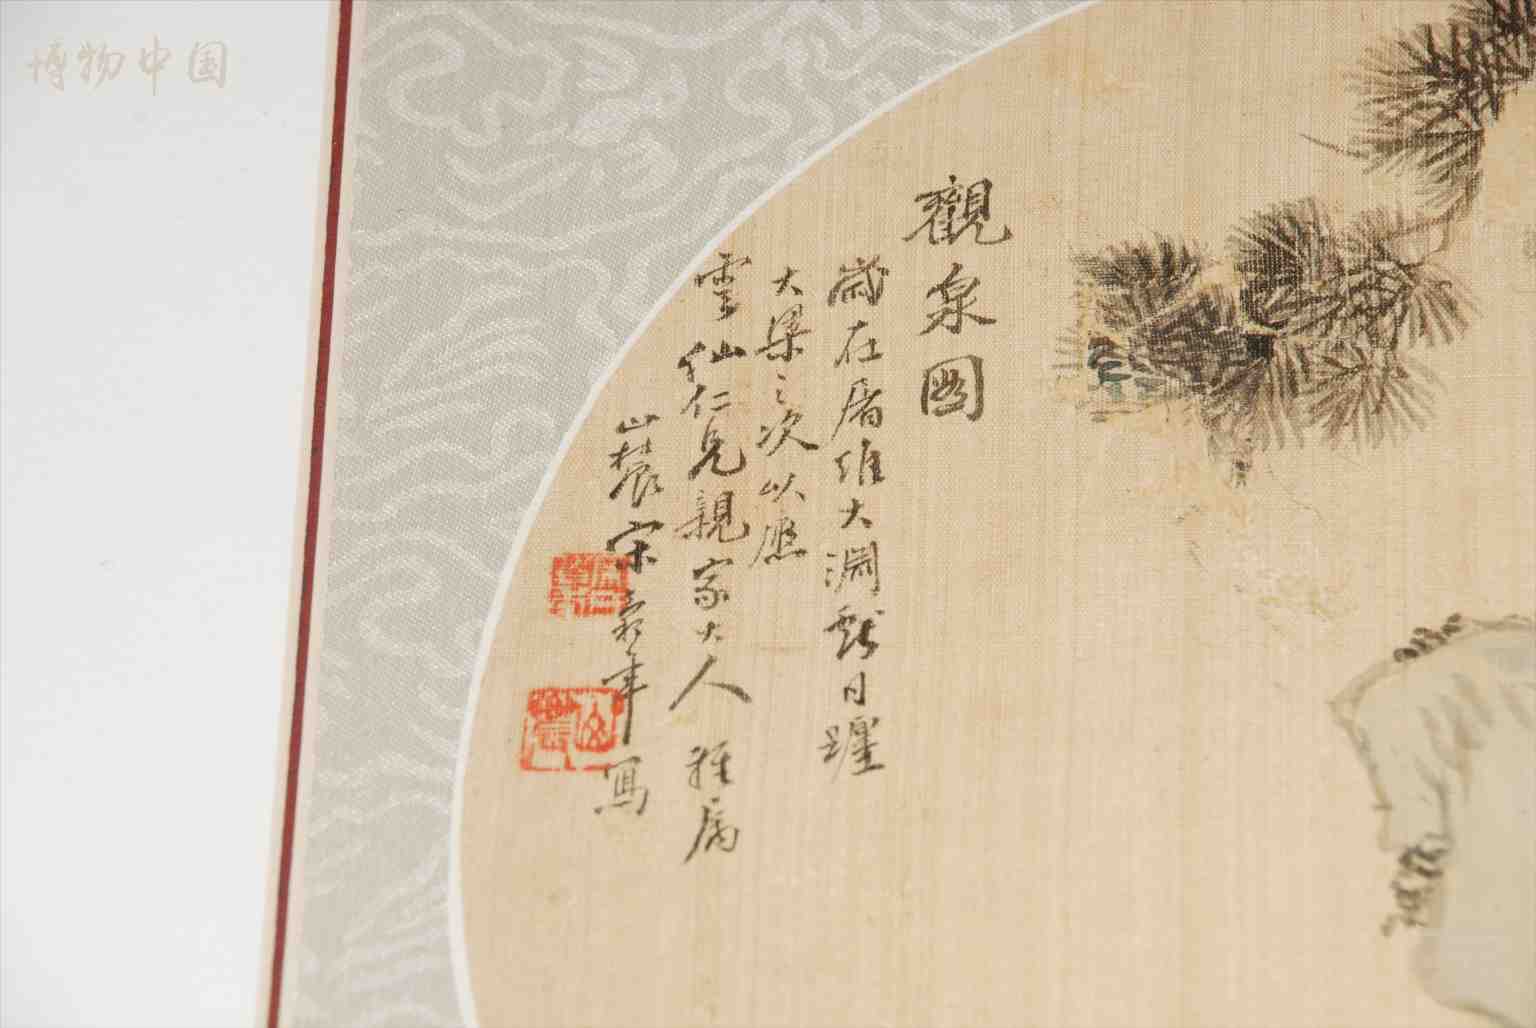 博物中国
觀泉圖
歲在屠維大淵獻日躔
大梁之次以應
雲仙仁兄親家大人雅属
山農宋年寫
山農